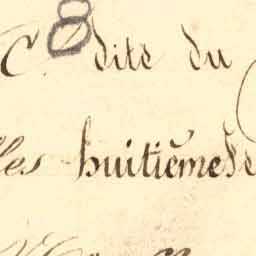 C. 8 dite du
les huitième de